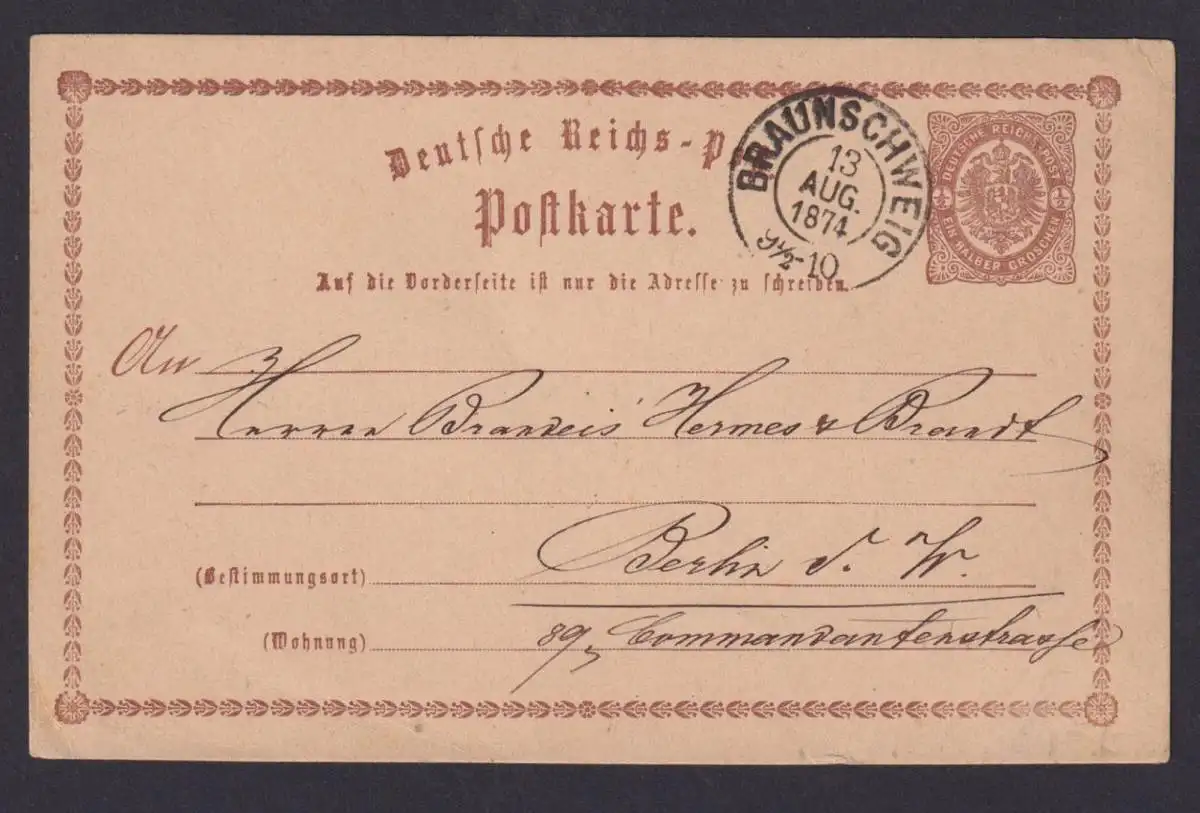 Deutsche Reichs-P
Postkarte.
BRAUNSCHWEIG
13
AUG.
1874
9½-10
DEUTSCHE REICHS-POST
½ ½
EIN HALBER GROSCHEN
Auf die Vorderseite ist nur die Adresse zu schreiben.
An
Herren Brandeis Hermes & Brandt
(Bestimmungsort) Berlin S. W.
(Wohnung) 89, Commandantenstrasse